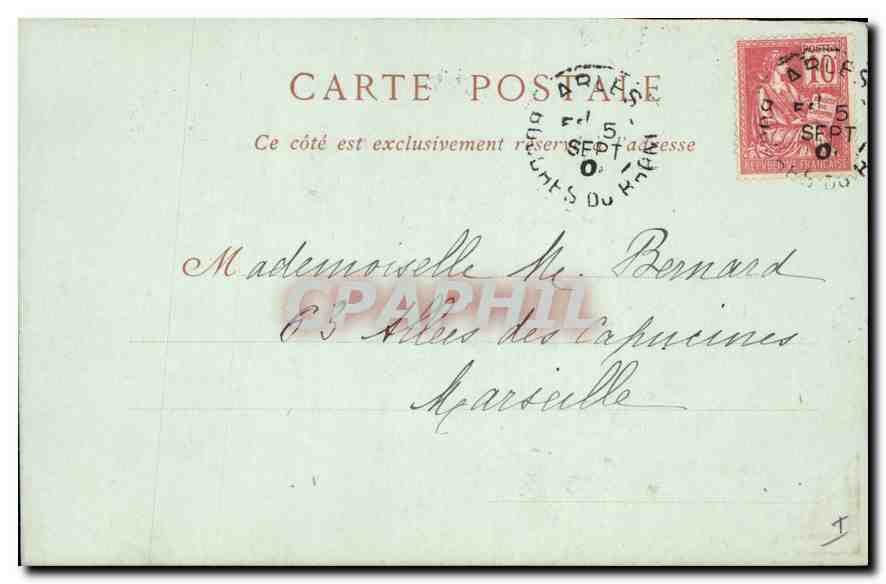 CARTE POSTALE
Ce côté est exclusivement réservé à l'adresse
ARLES
5
SEPT
BOUCHES DU RHONE
POSTES
10
REPUBLIQUE FRANÇAISE
Mademoiselle M. Bernard
CPAPHIL
63 Allées des Capucines
Marseille